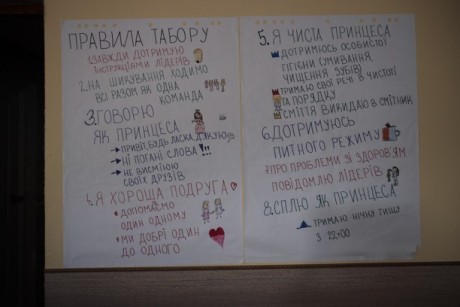 ПРАВИЛА ТАБОРУ
1.ЗАВЖДИ ДОТРИМУЮ
ІНСТРУКЦІЯМИ ЛІДЕРІВ
2.НА ШИКУВАННЯ ХОДИМО
ВСІ РАЗОМ ЯК ОДНА
КОМАНДА
3.ГОВОРЮ
ЯК ПРИНЦЕСА
ПРИВІТ, БУДЬ ЛАСКА, ДЯКУЮ
НІ ПОГАНІ СЛОВА!!!
НЕ ВИСМІЮЮ
СВОЇХ ДРУЗІВ
4.Я ХОРОША ПОДРУГА
ДОПОМАГАЄМО
ОДИН ОДНОМУ
МИ ДОБРІ ОДИН
ДО ОДНОГО
5.Я ЧИСТА ПРИНЦЕСА
ДОТРИМУЮСЬ ОСОБИСТОЇ
ГІГІЄНИ (ВМИВАННЯ,
ЧИЩЕННЯ ЗУБІВ)
ТРИМАЮ СВОЇ РЕЧІ В ЧИСТОТІ
ТА ПОРЯДКУ
СМІТТЯ ВИКИДАЮ В СМІТНИК
6.ДОТРИМУЮСЬ
ПИТНОГО РЕЖИМУ
7.ПРО ПРОБЛЕМИ ЗІ ЗДОРОВ'ЯМ
ПОВІДОМЛЮ ЛІДЕРІВ
8.СПЛЮ ЯК ПРИНЦЕСА
ТРИМАЮ НІЧНУ ТИШУ
З 22:00